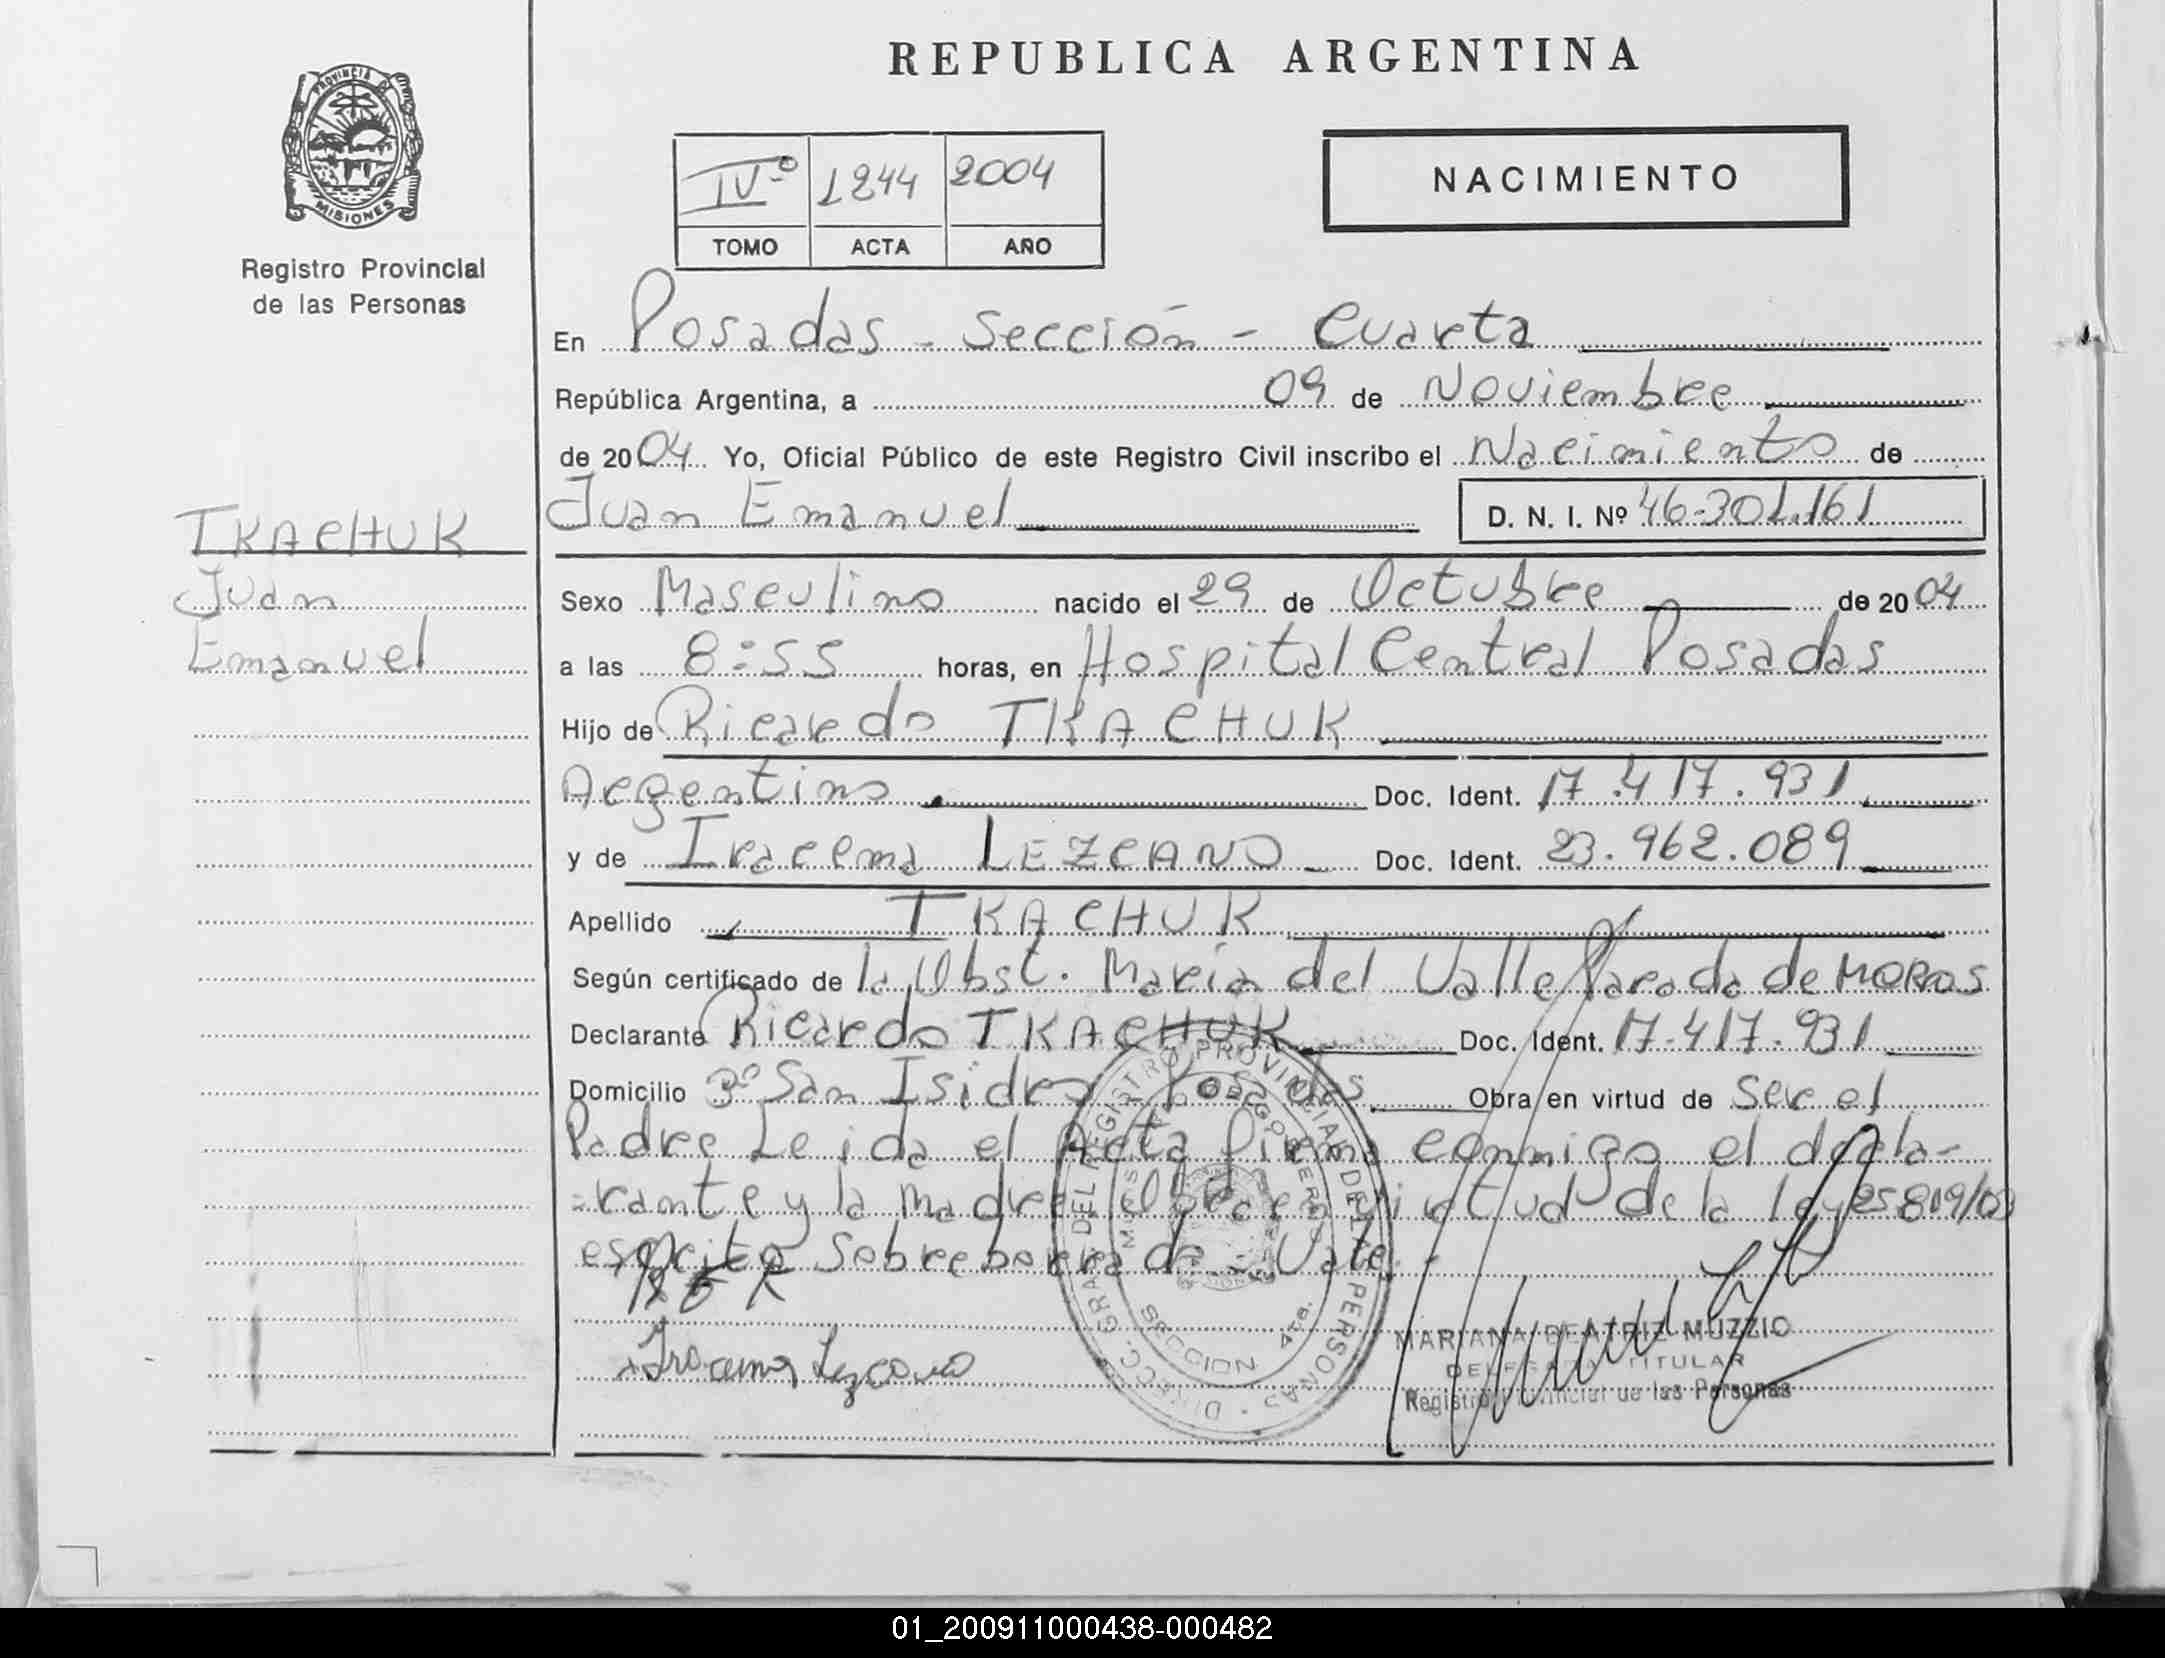 REPUBLICA ARGENTINA
PROVINCIA DE
MISIONES
Registro Provincial
de las Personas
IVº 1244 2004
TOMO ACTA AÑO
NACIMIENTO
En Posadas - Sección - Cuarta
República Argentina, a 09 de Noviembre
de 2004 Yo, Oficial Público de este Registro Civil inscribo el Nacimiento de
Juan Emanuel D. N. I. Nº 46.301.161
TKACHUK
Juan
Emanuel
Sexo Masculino nacido el 29 de Octubre de 2004
a las 8:55 horas, en Hospital Central Posadas
Hijo de Ricardo TKACHUK
Argentino Doc. Ident. 17.417.931
y de Iracema LEZCANO Doc. Ident. 23.962.089
Apellido TKACHUK
Según certificado de la Obst. María del Valle Parada de MORAS
Declarante Ricardo TKACHUK Doc. Ident. 17.417.931
Domicilio Bº San Isidro Posadas Obra en virtud de Ser el
Padre Leida el Acta firma conmigo el decla-
rante y la madre Obra en virtud de la ley 25819/03
escrito Sobreborrado - Vale
Iracema Lezcano
DIRECC. GRAL. DEL REGISTRO PROVINCIAL DE LAS PERSONAS
SECCION 4ta.
MARIANA BEATRIZ MUZZIO
DELEGADA TITULAR
Registro Provincial de las Personas
01_200911000438-000482